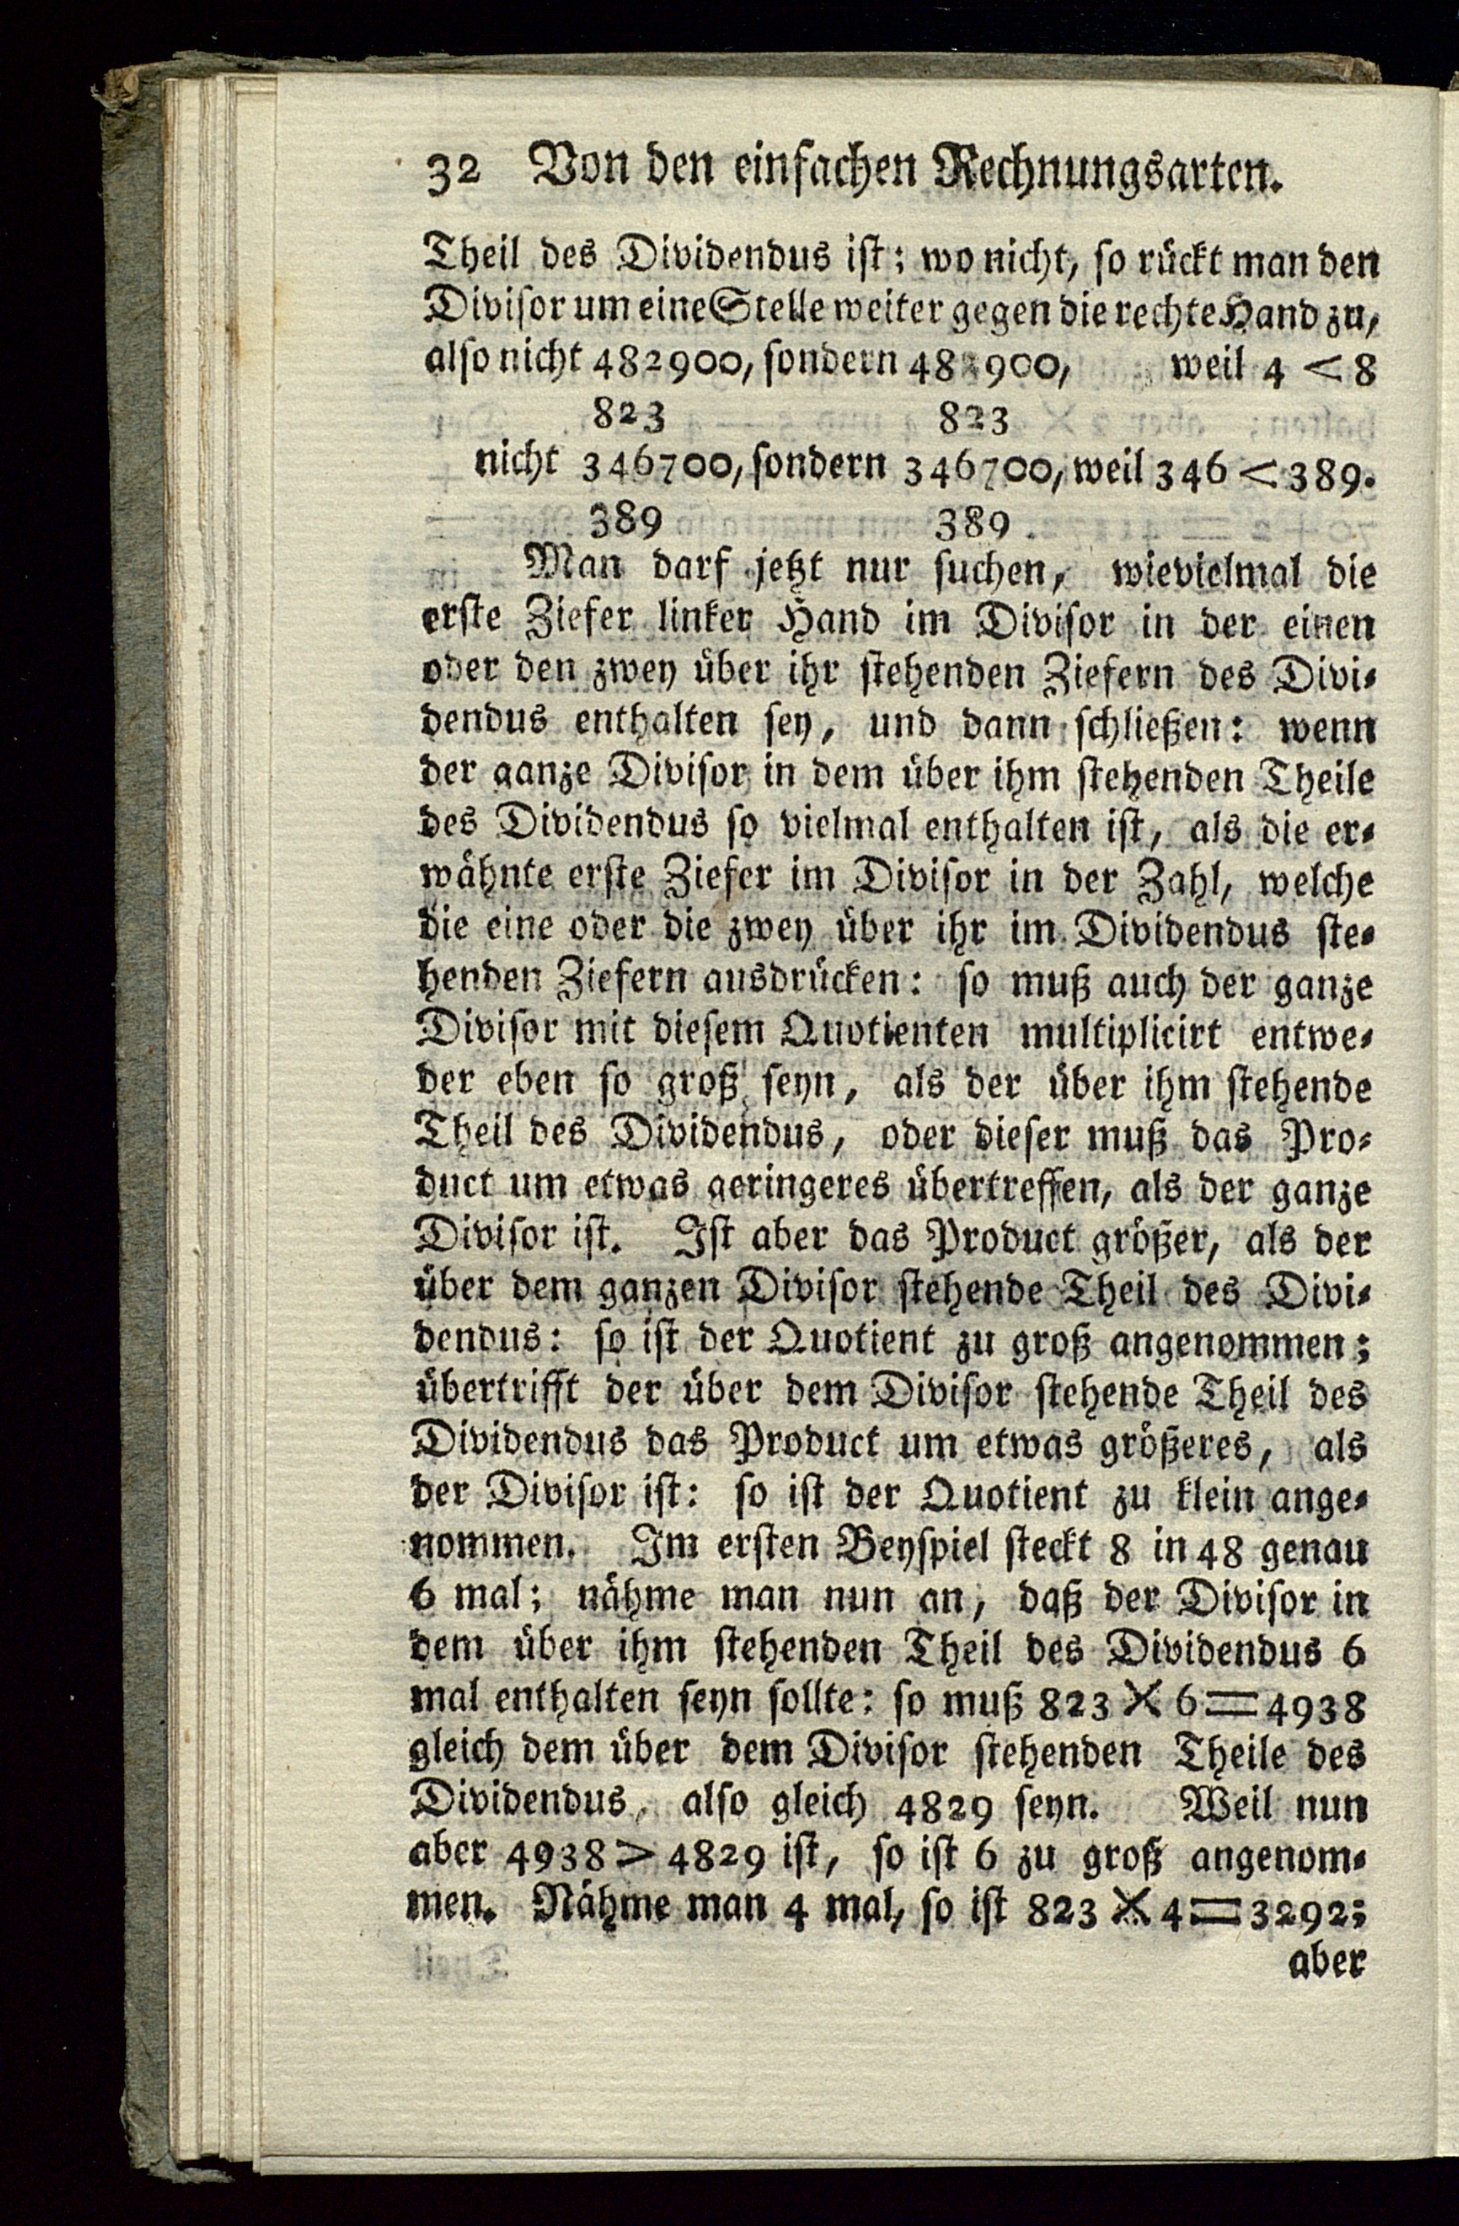 32 Von den einfachen Rechnungsarten.
Theil des Dividendus iſt; wo nicht, ſo rückt man den
Diviſor um eine Stelle weiter gegen die rechte Hand zu,
alſo nicht 482900, ſondern 482900, weil 4 < 8
823 823
nicht 346700, ſondern 346700, weil 346 < 389.
389 389.
Man darf jetzt nur ſuchen, wievielmal die
erſte Ziefer linker Hand im Diviſor in der einen
oder den zwey über ihr ſtehenden Ziefern des Divi-
dendus enthalten ſey, und dann ſchließen: wenn
der ganze Diviſor in dem über ihm ſtehenden Theile
des Dividendus ſo vielmal enthalten iſt, als die er-
wähnte erſte Ziefer im Diviſor in der Zahl, welche
die eine oder die zwey über ihr im Dividendus ſte-
henden Ziefern ausdrücken: ſo muß auch der ganze
Diviſor mit dieſem Quotienten multiplicirt entwe-
der eben ſo groß ſeyn, als der über ihm ſtehende
Theil des Dividendus, oder dieſer muß das Pro-
duct um etwas geringeres übertreffen, als der ganze
Diviſor iſt. Iſt aber das Product größer, als der
über dem ganzen Diviſor ſtehende Theil des Divi-
dendus: ſo iſt der Quotient zu groß angenommen;
übertrifft der über dem Diviſor ſtehende Theil des
Dividendus das Product um etwas größeres, als
der Diviſor iſt: ſo iſt der Quotient zu klein ange-
nommen. Im erſten Beyſpiel ſteckt 8 in 48 genau
6 mal; nähme man nun an, daß der Diviſor in
dem über ihm ſtehenden Theil des Dividendus 6
mal enthalten ſeyn ſollte: ſo muß 823 × 6 = 4938
gleich dem über dem Diviſor ſtehenden Theile des
Dividendus, alſo gleich 4829 ſeyn. Weil nun
aber 4938 > 4829 iſt, ſo iſt 6 zu groß angenom-
men. Nähme man 4 mal, ſo iſt 823 × 4 = 3292;
aber